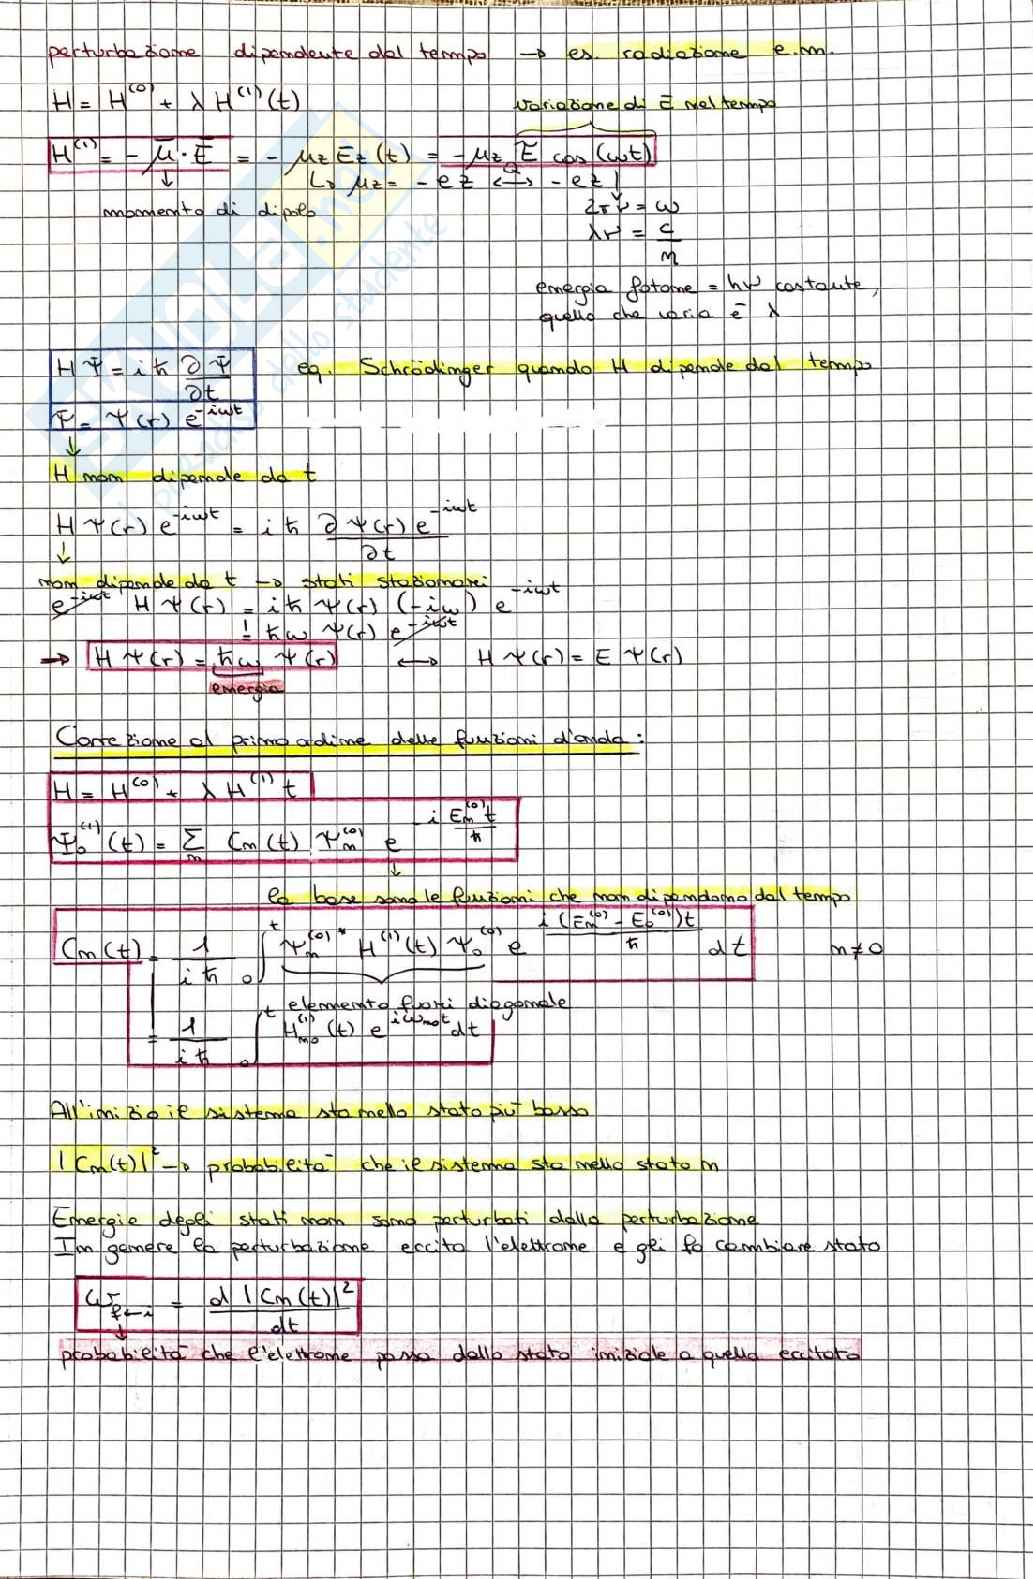 perturbazione dipendente dal tempo → es. radiazione e.m.
H = H⁽⁰⁾ + λ H⁽¹⁾(t)
variazione di E̅ nel tempo
H⁽¹⁾ = - μ̅ · E̅ = - μz Ez (t) = - μz E̅ cos (ωt)
↳ μz = - e z ↔ - e z
momento di dipolo
2πν = ω
λν = c/n
energia fotone = hν costante,
quello che varia è λ
H Ψ = i ħ ∂Ψ/∂t eq. Schrödinger quando H dipende dal tempo
Ψ = ψ(r) e^-iωt
↓
H non dipende da t
H ψ(r) e^-iωt = i ħ ∂ψ(r) e^-iωt / ∂t
↓
non dipende da t → stati stazionari
e^-iωt H ψ(r) = i ħ ψ(r) (-iω) e^-iωt
= ħω ψ(r) e^-iωt
⇒ H ψ(r) = ħω ψ(r) ↔ H ψ(r) = E ψ(r)
energia
Correzione al primo odine delle funzioni d'onda:
H = H⁽⁰⁾ + λ H⁽¹⁾ t
Ψ₀⁽¹⁾ (t) = Σn Cn(t) ψn⁽⁰⁾ e^-i En⁽⁰⁾t/ħ
↓
la base sono le funzioni che non dipendono dal tempo
Cn(t) = 1/iħ ₀∫ᵗ ψn⁽⁰⁾* H⁽¹⁾(t) ψ₀⁽⁰⁾ e^i(En⁽⁰⁾ - E₀⁽⁰⁾)t/ħ dt n≠0
elemento fuori diagonale
= 1/iħ ₀∫ᵗ Hn0⁽¹⁾ (t) e^iωn0t dt
All'inizio il sistema sta nello stato più basso
|Cn(t)|² → probabilità che il sistema sta nello stato n
Energie degli stati non sono perturbati dalla perturbazione
In genere la perturbazione eccita l'elettrone e gli fa cambiare stato
ω f←i = d |Cn(t)|² / dt
↓
probabilità che l'elettrone passa dallo stato iniziale a quello eccitato